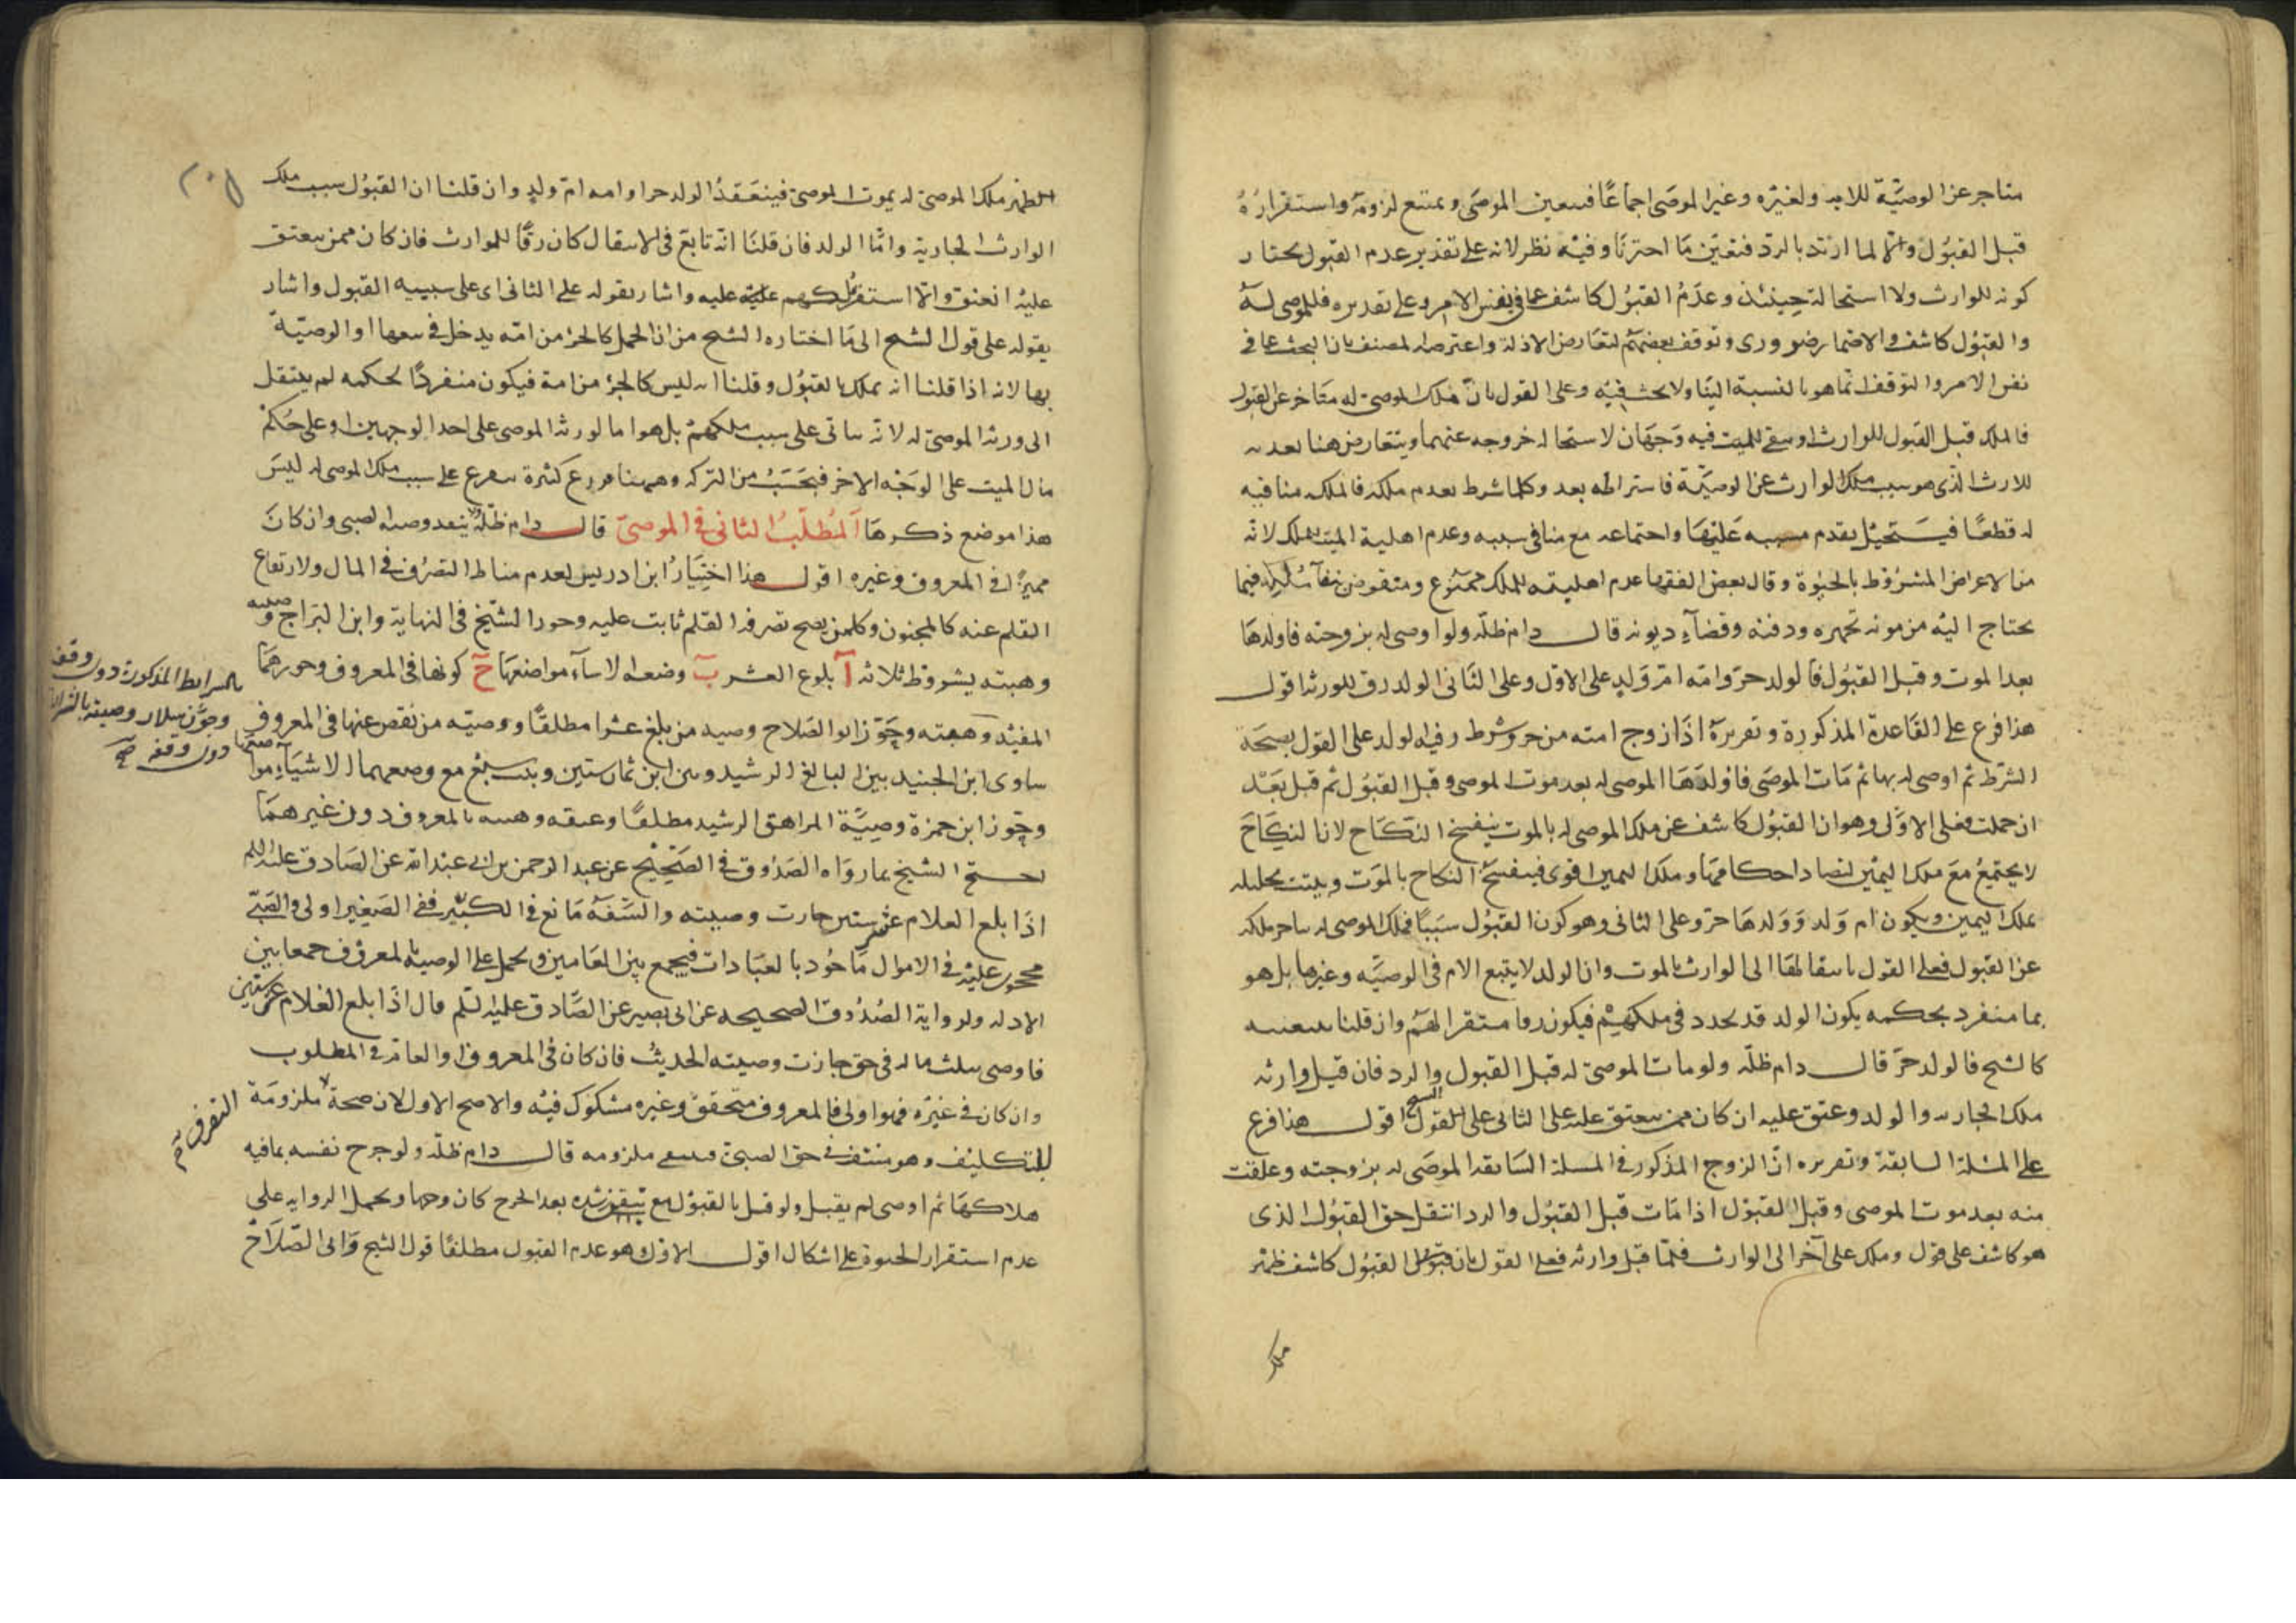 متاخر عن الوصيّة للابد ولغيره وغير الموصى اجماعًا فيتعين الموصى ويمتنع لزومه واستقراره
قبل القبول والا لما ارتد بالرد فتعيّن مَا اخترنا وفيه نظر لانه على تقدير عدم القبول يختار
كونه للوارث ولا استحالة حينئذ وعدمُ القبول كاشف عما في نفس الامر وعلى تقديره فللموصى له
والقبول كاشف والانتماء ضروري وتوقف بعضهم لتعارض الادلة واعترضه المصنف بان البحث عما في
نفس الامر والتوقف انما هو بالنسبة الينا ولا بحث فيه وعلى القول بانّ ملك الموصى له متاخر عن القبول
فالملك قبل القبول للوارث او يبقى للميت فيه وَجهَان لاستحالة خروجه عنهما ويتعارض هنا بعدية
للارث الذى هو سبب ملك الوارث عن الوصيّة فاشتراطه بعد وكلما شرط بعدم ملكه فالملك منافيه
له قطعًا فيَستحيل تقدم مسببه عليها واجتماعه مع منافى سببه وعدم اهلية الميت للملك لانّه
من الاعراض المشروط بالحيوة وقال بعض الفقها عدم اهليته للملك ممنوع ومنقوض ببقاء ملكه فيما
يحتاج اليه من مونة تجهيزه ودفنه وقضآء ديونه قال دام ظلّه ولو اوصى له بزوجته فاولدهَا
بعد الموت وقبل القبول فالولد حرّ وامّه امّ وَلدٍ على الاوّل وعلى الثاني الولد رق للورثة اقول
هذا فرع على القَاعدة المذكورة وتقريرهُ اذَا زوج امته من حر وشرط رقية الولد على القول بصحَة
الشرط ثم اوصى له بها ثم مَات الموصَى فاولدهَا الموصى له بعد موت الموصى وقبل القبول ثم قبل بَعْد
ان حملت فعلى الاوّل وهو ان القبول كاشف عن ملك الموصى له بالموت ينفسخ النكَاح لان النكَاحَ
لا يجتمعُ مَعَ ملك اليمين لتضاد احكامهَا وملك اليمين اقوى فينفسخ النكاح بالموَت ويثبت تحليله
بملك اليمين ويكون ام وَلد وَوَلدهَا حرّ وعلى الثانى وهو كون القبول سَببًا فملك الموصى له يتاخر ملكه
عن القبول فعلى القول بانتقالهَا الى الوارث بالموت وان الولد لا يتبع الام فى الوصيّه وغيرها بل هو
بما منفرد بحكمه يكون الولد قد تجدد فى ملكهم فيكون رقا مستقرا لهم وان قلنا بتبعيته
كالشيخ فالولد حرّ قال دام ظلّه ولو مات الموصىٰ له قبل القبول والرد فان قبل وارثه
ملك الجاريه والولد وعتق عليه ان كان ممن يعتق عليه على الثانى على القول الشيخ اقول هذا فرع
على المسئلة السابقة وتقريره انّ الزوج المذكور فى المسلة السَابقة الموصَى له بزوجته وعلقت
منه بعد موت الموصى وقبل القبول اذا مَات قبل القبُول والرد انتقل حق القبُول الذى
هو كاشف على قول وملك على آخر الى الوارث فلمّا قبل وارثه فعلى القول بان قبول القبُول كاشف ظهر
ملك
لظهر ملك الموصى له بموت الموصى فينعَقدُ الولد حرا وامه امّ ولدٍ وان قلنا ان القبُول سبب ملك
الوارث الجارية وامّا الولد فان قلنَا انه تابع فى الانتقال كان رقًّا للوارث فان كان ممن يعتق
عليه انعتق والّا استقر ملكهم عليه واشار بقوله على الثانى اى على سببيه القبول واشار
بقوله على قول الشيخ الى مَا اختاره الشيخ من ان الحمل كالجزء من امّه يدخل فى بيعها او الوصيّة
بها لانه اذا قلنا انه يملك بالقبُول وقلنا انه ليس كالجزء من امة فيكون منفردًا بحكمه لم ينتقل
الى ورثة الموصىٰ له لانّه باقى على سبب ملكهم بل هو امّا لورثة الموصى على احد الوجهين او على حُكم
مال الميت على الوَجْه الاخر فيَحسَبُ من التركه وههنا فروع كثيرة تتفرع على سبب ملك الموصى له ليسَ
هذا موضع ذكرهَا المَطْلَبُ الثانى في الموصىٰ قال دام ظلّه لا ينفذ وصية الصبى وان كانَ
مميزًا فى المعروف وغيره اقول هذا اختيَارُ ابن ادريس لعدم مناط التصرُف في المال ولارتفاع
القلم عنه كالمجنون وكلمن يصح تصرفه القلم ثابت عليه وجوز الشيخ فى النهاية وابن البَراج وصيته
وهبته بشروط ثلاثه آ بلوغ العشر ب وضعه الاشيآء مواضعهَا ج كونها فى المعروف وجوزهمَا
المفيد وهبته وجَوّز ابو الصَلاح وصيه من بلغ عشرا مطلقًا ووصيّه من نقص عنها فى المعروف
ساوى ابن الجنيد بين البالغ الرشيد ومن ابن ثمان سنين وبنت سبعْ مع وضعهما الاشيَآء مواضعها
وجَوز ابن حمزة وصيّة المراهق الرشيد مطلقًا وعتقه وهبته بالمعروف دون غيرهمَا
احتج الشيخ بما روَاه الصَدُوق فى الصَحيح عن عبد الرحمن بن ابى عبد الله عن الصَادق عليه السلم
اذَا بلغ الغلام عشر سنين جازت وصيته والسّفَه مَانع فى الكبير ففى الصَغير اولى والصَبّى
محجور عليه فى الاموال مَاخوذ بالعبَادات فيجمع بين العَامين ويحمل على الوصيه بالمعروف جمعا بين
الادله ولرواية الصُدُوق الصحيحه عن ابى بصير عن الصَّادق عليه السّلم قال اذَا بلغ الغلام عشر سنين
فاوصى بثلث ماله فى حق جازت وصيته الحديثُ فان كان فى المعروف او العام في المطلوب
وان كان فى غيره فهو اولى فالمعروف متحقق وغيره مشكوك فيه والاصح الاول لان صحة ملزومَة
للتكليف وهو منتف فى حق الصبىّ فينتفى ملزومه قال دام ظلّه ولو جرح نفسه بما فيه
هلاكهَا ثم اوصى لم يقبل ولو قيل بالقبول مع تيقن رشده بعد الجرح كان وجها ويحمل الروايه على
عدم استقرار الحيوة على اشكال اقول الاوّل هو عدم القبول مطلقًا قول الشيخ وَابى الصّلاح
بالشرايط المذكورة دون وقفه
وجوّز سلار وصيته
دون وقفه صح
التصرف